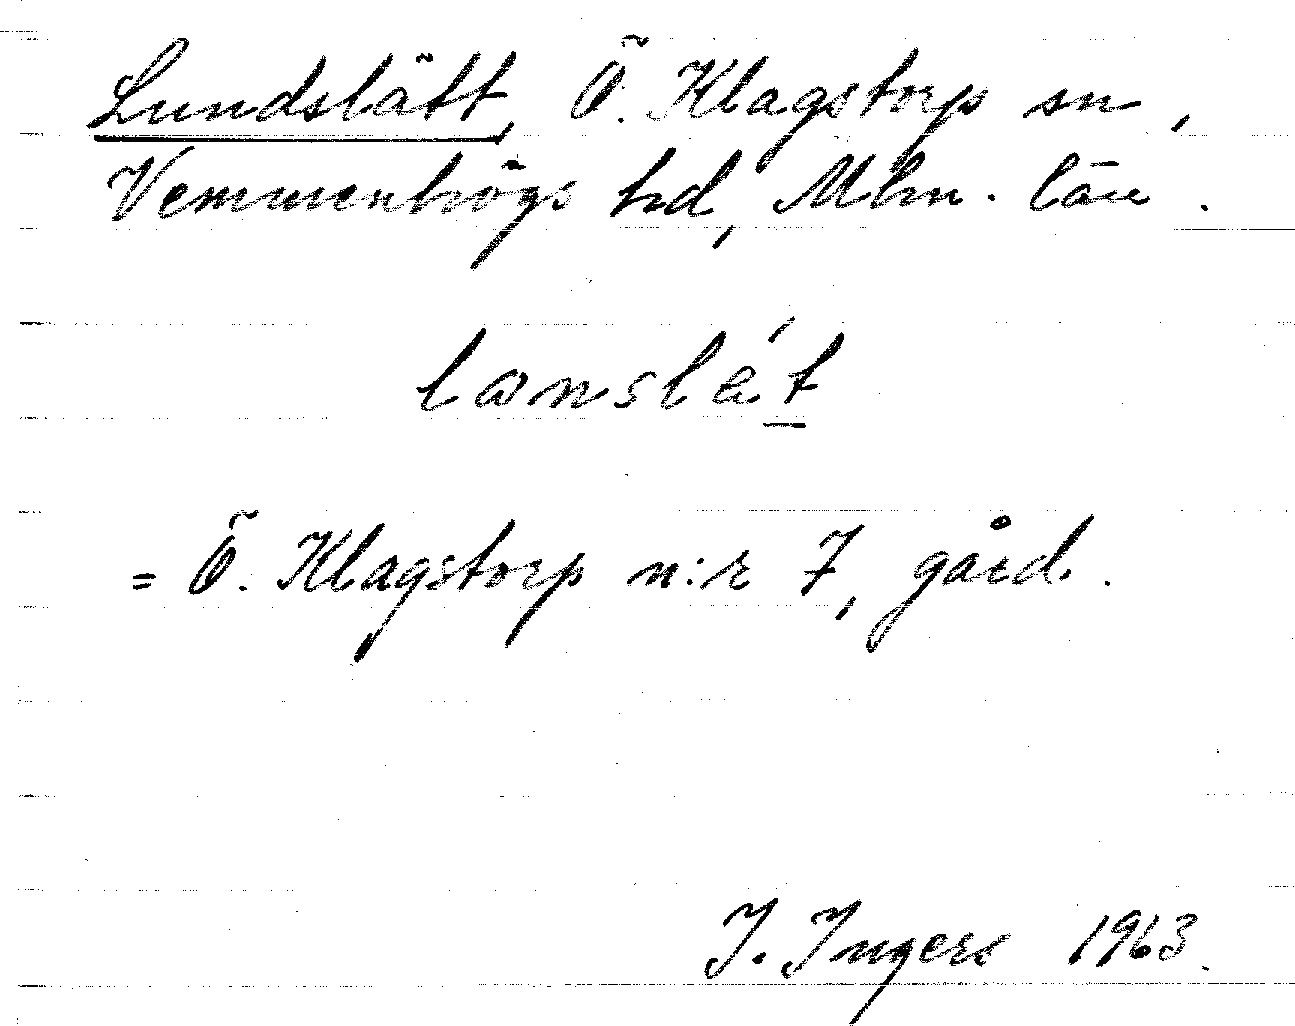 Lundslätt, Ö. Klagstorp sn,
Vemmenhögs hd, Mlm. län.
lɷnslǽt
= Ö. Klagstorp n:r 7, gård.
I. Ingers 1963.